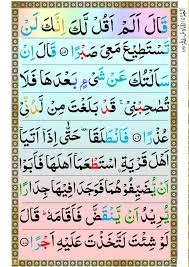 قَالَ اَلَمْ اَقُلْ لَّكَ اِنَّكَ لَنْ
تَسْتَطِيْعَ مَعِيَ صَبْرًا ۞ قَالَ اِنْ
سَاَلْتُكَ عَنْ شَيْءٍۭ بَعْدَهَا فَلَا
تُصٰحِبْنِيْ ۚ قَدْ بَلَغْتَ مِنْ لَّدُنِّيْ
عُذْرًا ۞ فَانْطَلَقَا ࣞ حَتّٰۤى اِذَاۤ اَتَيَاۤ
اَهْلَ قَرْيَةِ اِۨسْتَطْعَمَاۤ اَهْلَهَا فَاَبَوْا
اَنْ يُّضَيِّفُوْهُمَا فَوَجَدَا فِيْهَا جِدَارًا
يُّرِيْدُ اَنْ يَّنْقَضَّ فَاَقَامَهٗ ؕ قَالَ
لَوْ شِئْتَ لَتَّخَذْتَ عَلَيْهِ اَجْرًا ۞